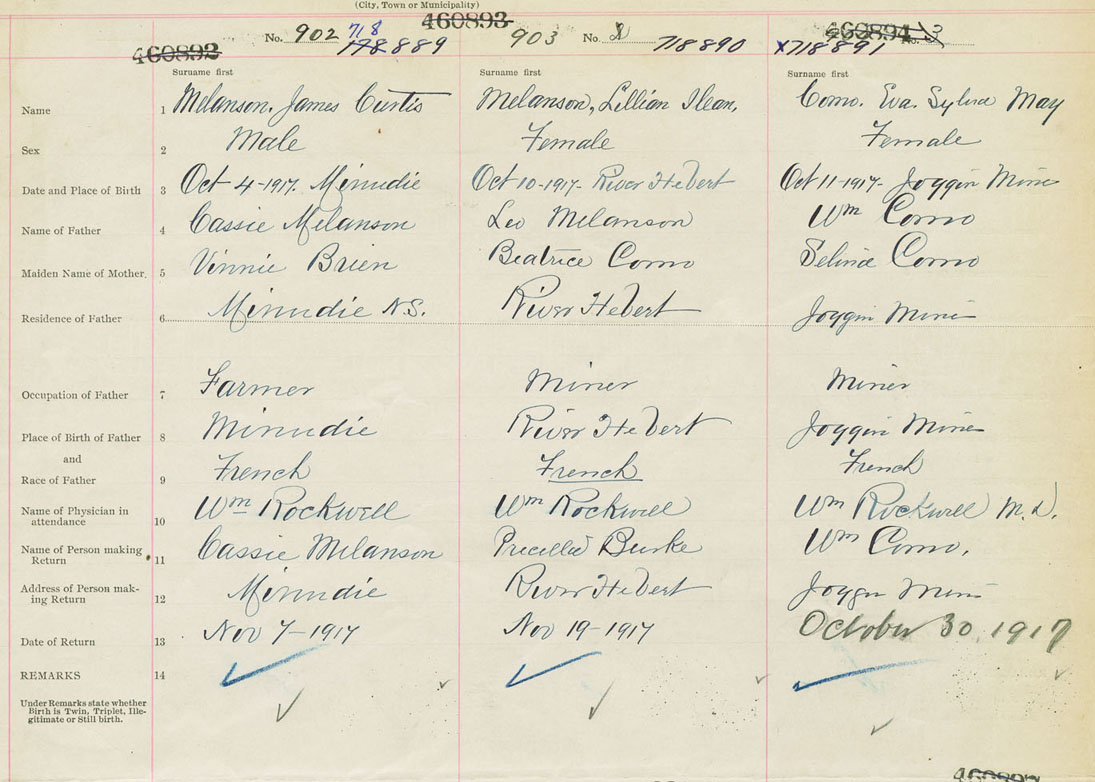 (City, Town or Municipality)
460892 No. 902 718 178889
460893 903 No. 718890
460894 No. 3 X718891
Surname first Surname first Surname first
Name 1 Melanson, James Curtis Melanson, Lillian Ilean, Como. Eva. Sylvia May
Sex 2 Male Female Female
Date and Place of Birth 3 Oct 4-1917. Minudie Oct 10-1917- River Hebert Oct 11-1917- Joggin Mine
Name of Father 4 Cassie Melanson Leo Melanson Wm Como
Maiden Name of Mother. 5 Vinnie Brien Beatrice Como Selina Como
Residence of Father 6 Minudie N.S. River Hebert Joggin Mine
Occupation of Father 7 Farmer Miner Miner
Place of Birth of Father 8 Minudie River Hebert Joggin Mine
and
Race of Father 9 French French French
Name of Physician in
attendance 10 Wm Rockwell Wm Rockwell Wm Rockwell M.D.
Name of Person making
Return 11 Cassie Melanson Precilla Burke Wm Como.
Address of Person mak-
ing Return 12 Minudie River Hebert Joggin Mine
Date of Return 13 Nov 7-1917 Nov 19-1917 October 30 1917
REMARKS 14
Under Remarks state whether
Birth is Twin, Triplet, Ille-
gitimate or Still birth.